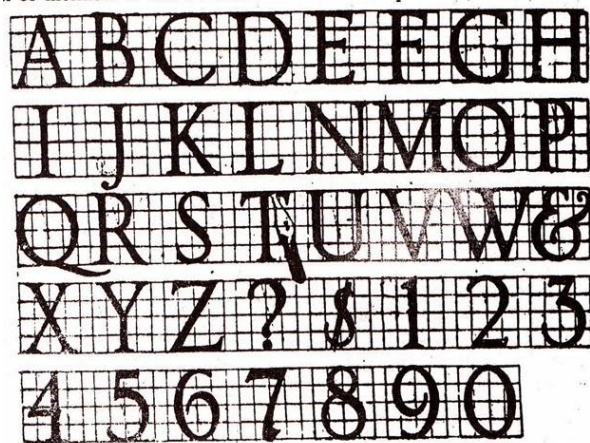 A B C D E F G H
I J K L N M O P
Q R S T U V W &
X Y Z ? $ 1 2 3
4 5 6 7 8 9 0